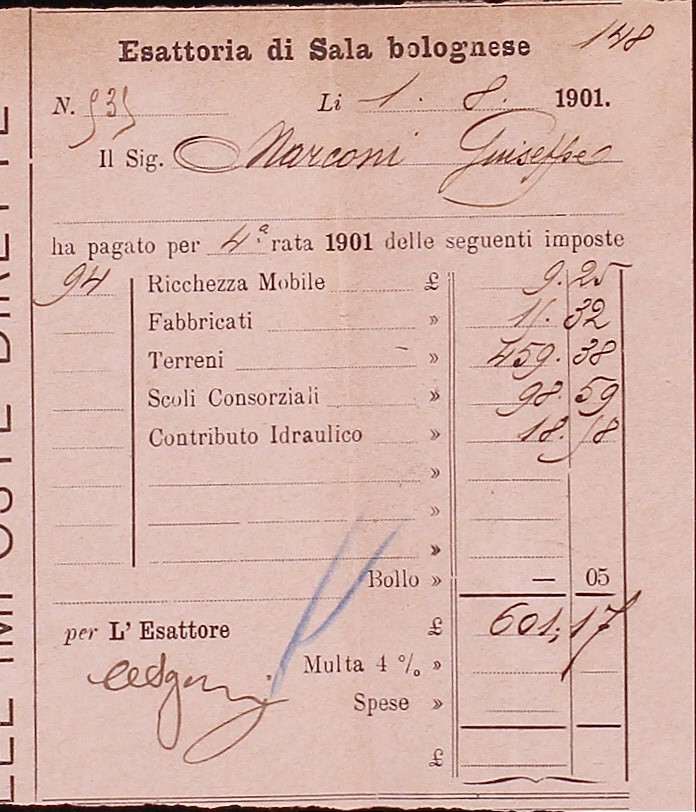 Esattoria di Sala bolognese 148
N. 535 Li 1. 8. 1901.
Il Sig. Marconi Giuseppe
ha pagato per 4ª rata 1901 delle seguenti imposte
94 Ricchezza Mobile £ 9. 25
Fabbricati » 15. 32
Terreni » 459. 38
Scoli Consorziali » 98. 59
Contributo Idraulico » 18. 58
»
»
»
Bollo » — 05
per L' Esattore £ 601, 17
Multa 4 % »
Spese »
£
LLE IMPOSTE DIRETTE